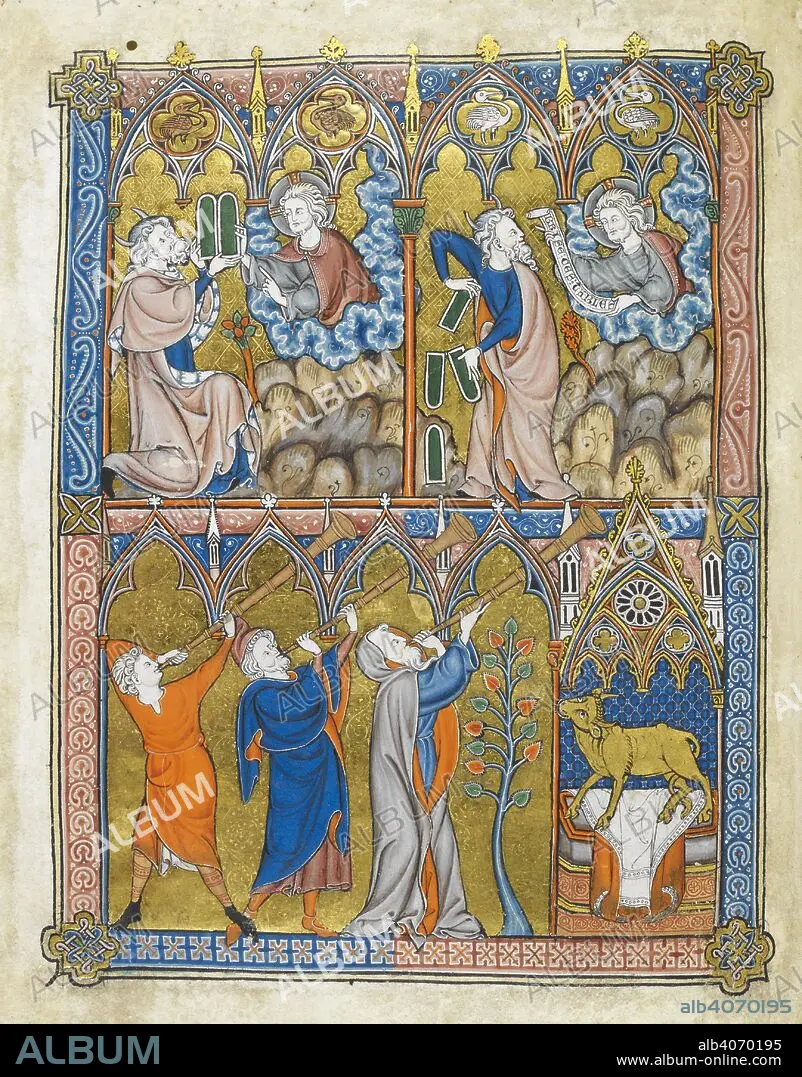 alb4070195
ALBUM
alb4070195
www.album-online.com